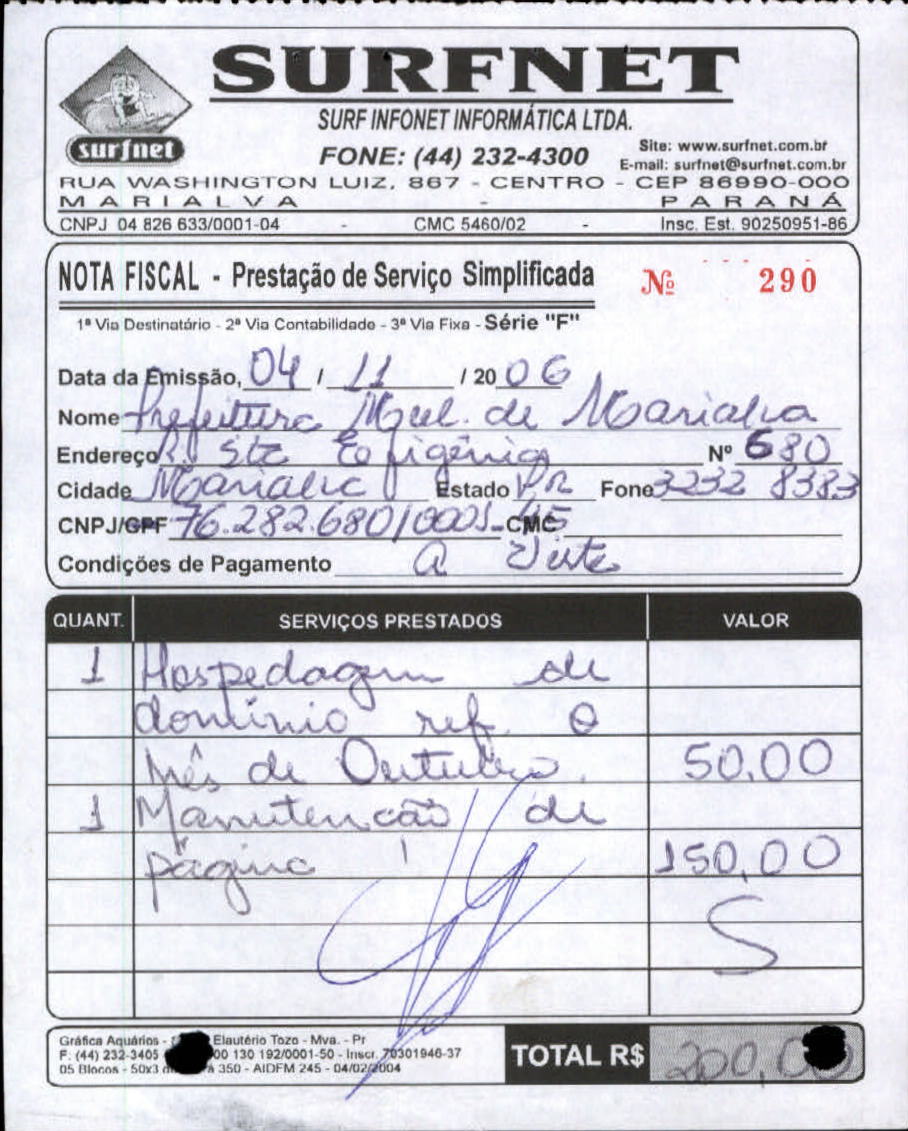 SURFNET
surfnet
SURF INFONET INFORMÁTICA LTDA.
FONE: (44) 232-4300
Site: www.surfnet.com.br
E-mail: surfnet@surfnet.com.br
RUA WASHINGTON LUIZ, 867 - CENTRO - CEP 86990-000
MARIALVA - PARANÁ
CNPJ 04 826 633/0001-04 - CMC 5460/02 - Insc. Est. 90250951-86
NOTA FISCAL - Prestação de Serviço Simplificada Nº 290
1ª Via Destinatário - 2ª Via Contabilidade - 3ª Via Fixa - Série "F"
Data da Emissão, 04 / 11 / 2006
Nome Prefeitura Mul. de Marialva
Endereço R. Sta Efigênia Nº 680
Cidade Marialva Estado PR Fone 3232 8383
CNPJ/CPF 76.282.680/0001-45 CMC
Condições de Pagamento A Vista
QUANT. SERVIÇOS PRESTADOS VALOR
1 Hospedagem de
domínio ref. o
mês de Outubro. 50,00
1 Manutencão de
página 150,00
Gráfica Aquários - Elautério Tozo - Mva. - Pr
F: (44) 232-3405 00 130 192/0001-50 - Inscr. 70301946-37
05 Blocos - 50x3 à 350 - AIDFM 245 - 04/02/2004
TOTAL R$ 200,